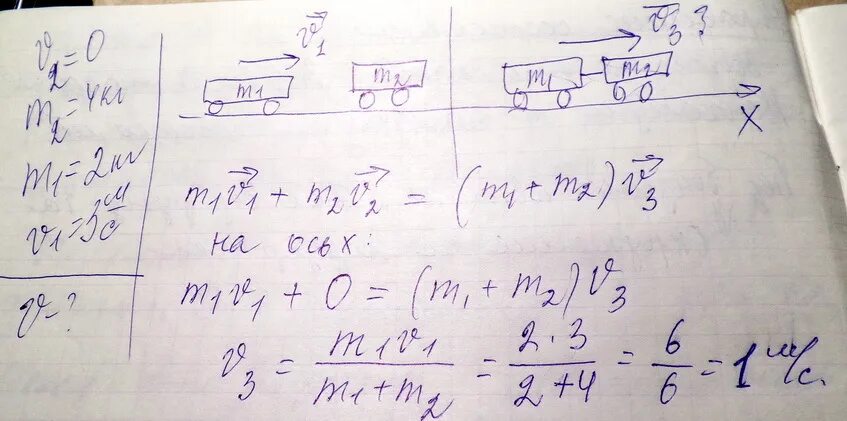 v₂ = 0
m₂ = 4кг
m₁ = 2кг
v₁ = 3 м/с
v - ?
v⃗₁
m₁
m₂
v⃗₃ ?
m₁
m₂
X
m₁v⃗₁ + m₂v⃗₂ = (m₁ + m₂)v⃗₃
на ось х:
m₁v₁ + 0 = (m₁ + m₂)v₃
v₃ = m₁v₁ / (m₁ + m₂) = 2 · 3 / (2 + 4) = 6/6 = 1 м/с.